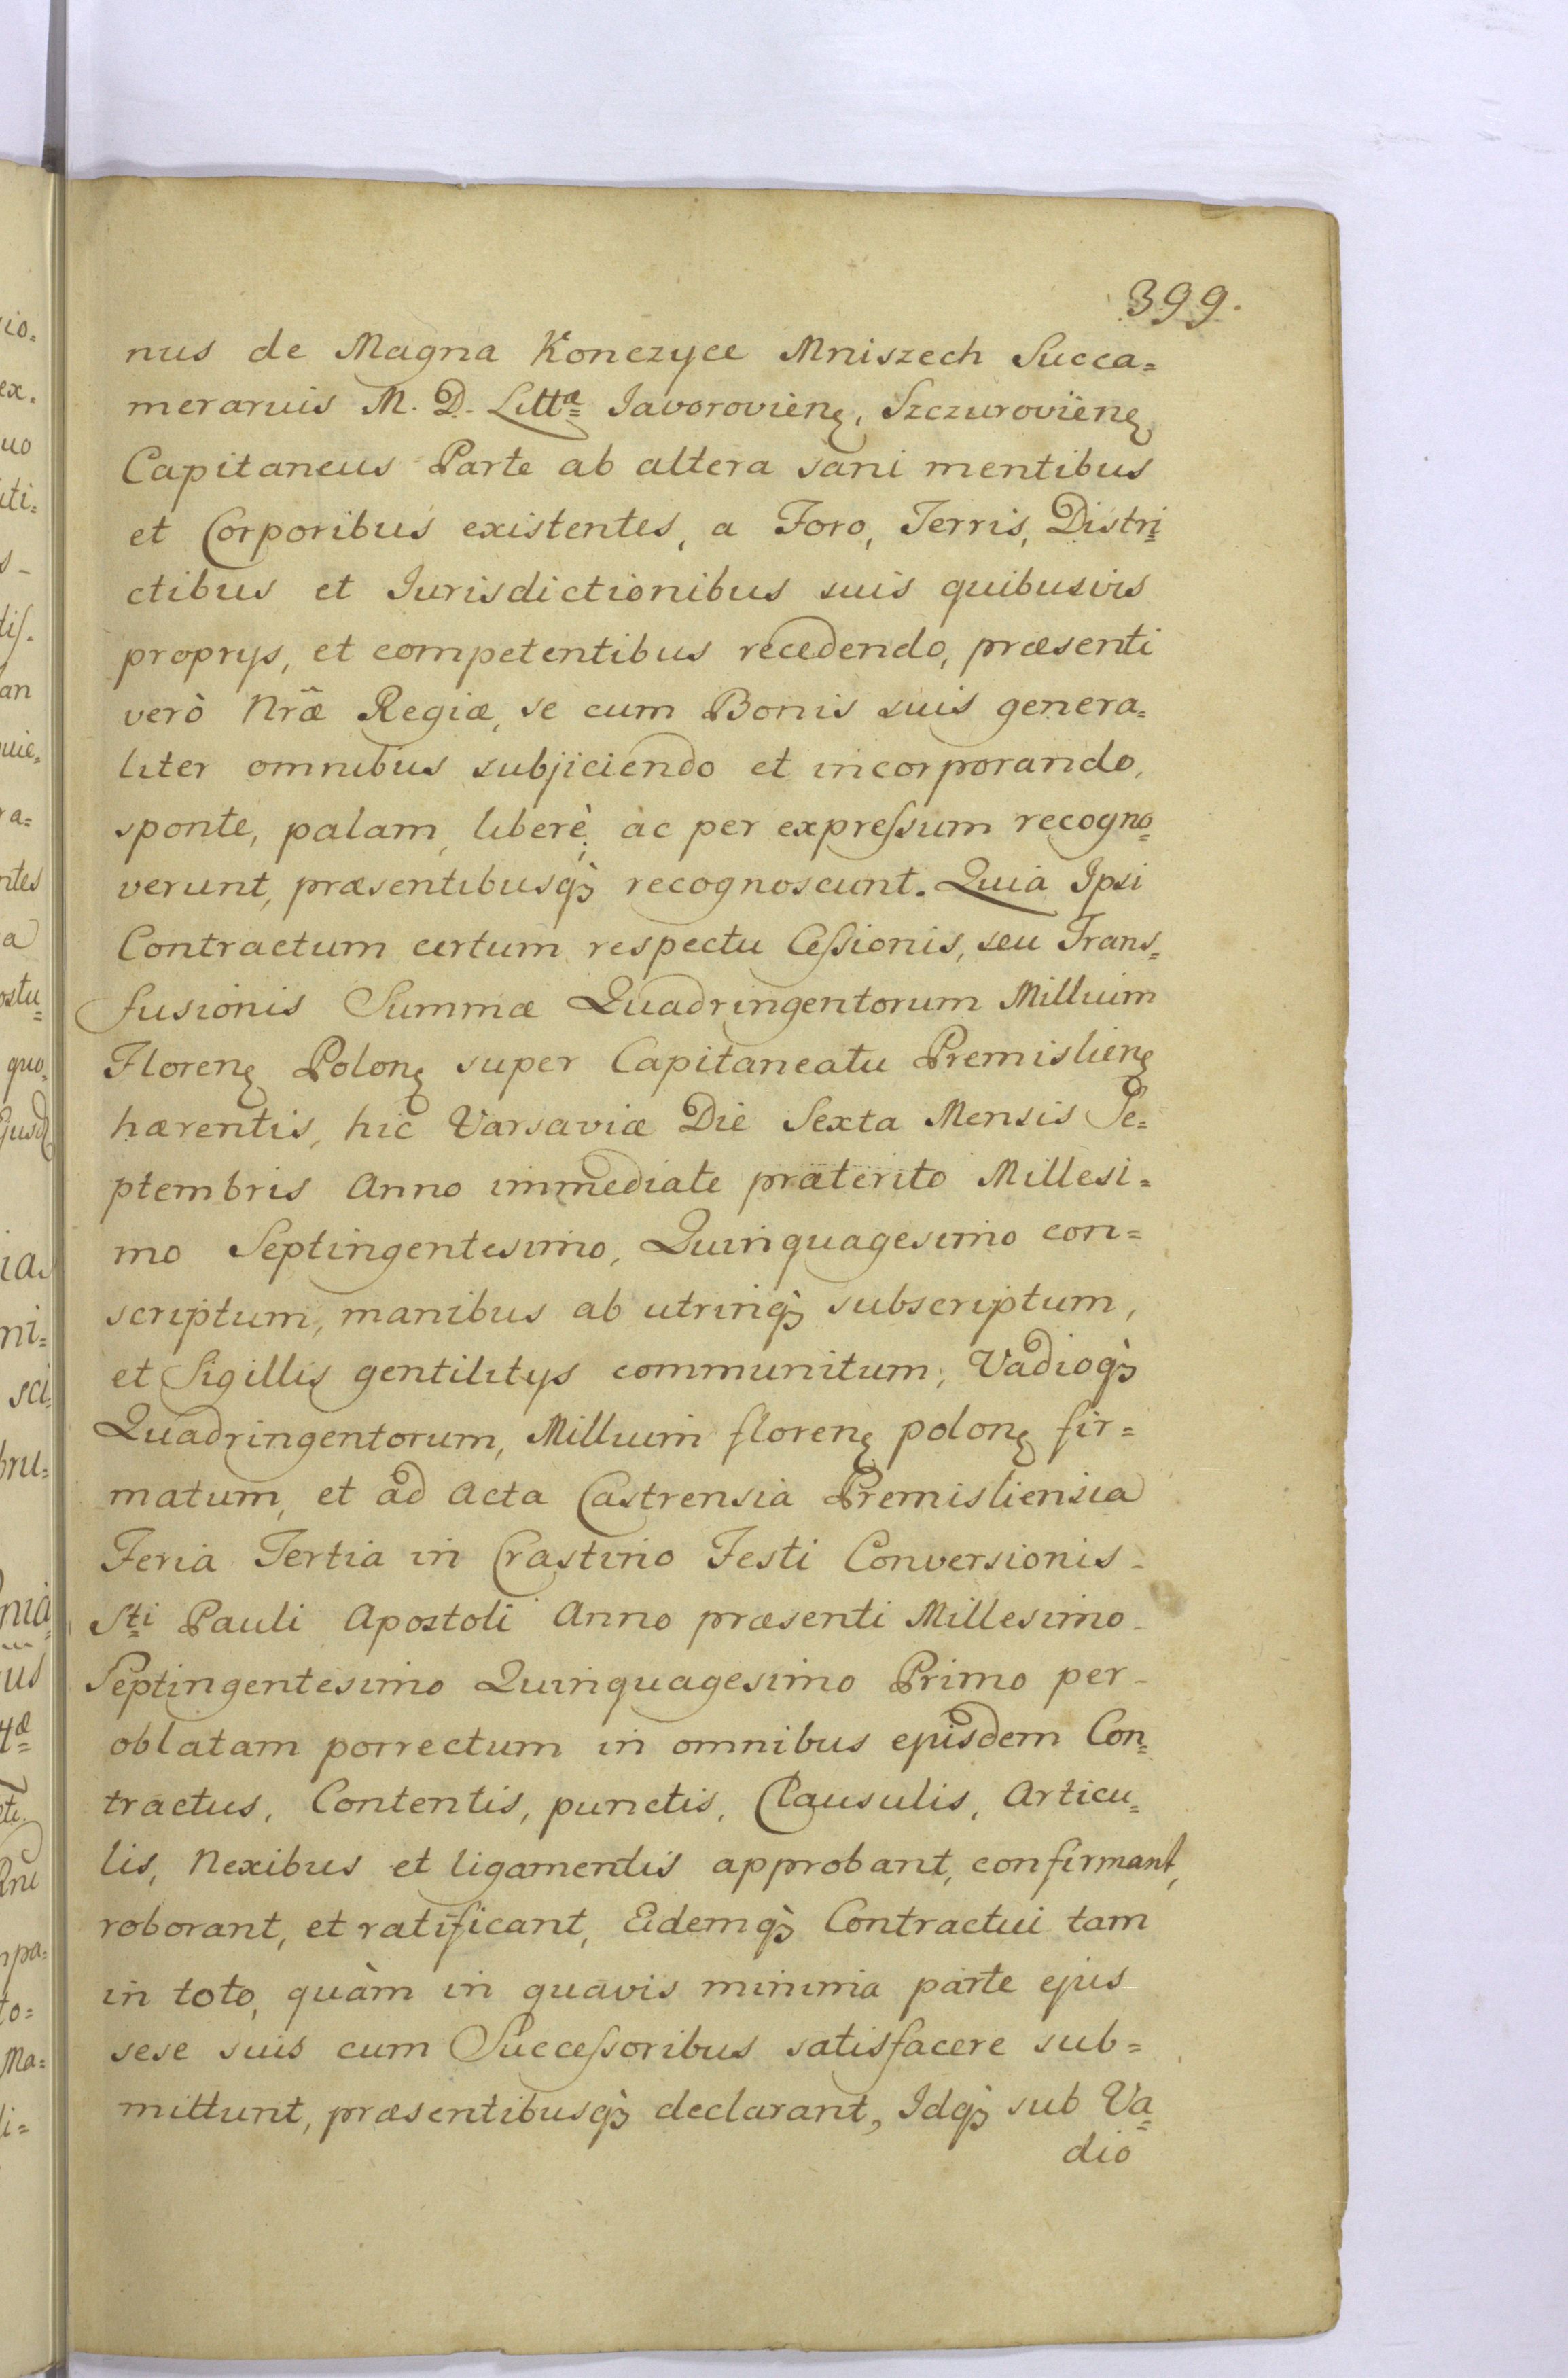 399.
nus de Magna Konczyce Mniszech Succa=
merarius M. D. Littæ Iavoroviens, Szczuroviens
Capitaneus Parte ab altera sani mentibus
et Corporibus existentes, a Foro, Terris, Distri=
ctibus et Iurisdictionibus suis quibusvis
proprys, et competentibus recedendo, præsenti
verò Nrã Regiæ, se cum Bonis suis genera=
liter omnibus subjiciendo et incorporando,
sponte, palam, liberè, àc per expreſsum recogno=
verunt, præsentibusq̀ recognoscunt. Quia Ipsi
Contractum certum respectu Ceſsionis, seu Trans=
fusionis Summæ Quadringentorum Millium
Floren Polon super Capitaneatu Premislien
hærentis, hic Varsaviæ Die Sexta Mensis Se=
ptembris Anno immediate præterito Millesi=
mo Septingentesimo, Quinquagesimo con=
scriptum, manibus ab utrinq̀ subscriptum,
et Sigillis gentilitys communitum, Vadioq̀
Quadringentorum, Millium floren polon fir=
matum, et ad Acta Castrensia Premisliensia
Feria Tertia in Crastino Festi Conversionis
Sti Pauli Apostoli Anno præsenti Millesimo
Septingentesimo Quinquagesimo Primo per
oblatam porrectum in omnibus ejusdem Con=
tractus, Contentis, punctis, Clausulis, Articu=
lis, Nexibus et ligamentis approbant, confirmant,
roborant, et ratificant, Eidemq̀ Contractui tam
in toto, quàm in quavis minima parte ejus
sese suis cum Succeſsoribus satisfacere sub=
mittunt, præsentibusq̀ declarant, Idq̀ sub Va=
dio